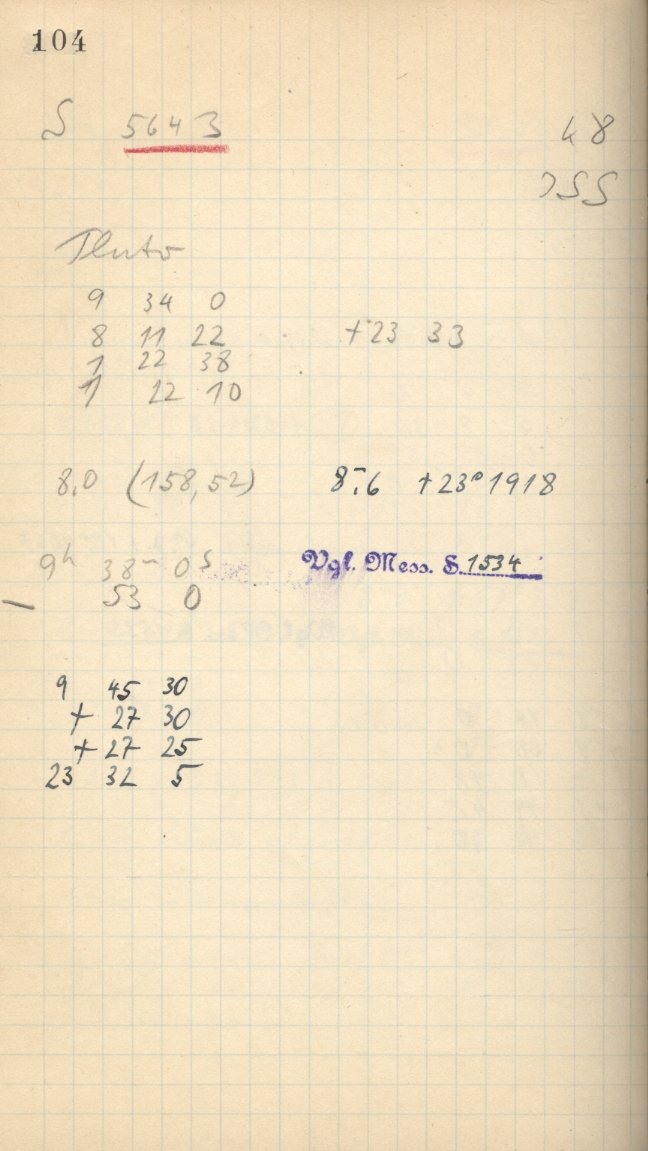 104
S 5643
48
Pluto
9 34 0
8 11 22 +23 33
1 22 38
1 22 10
8,0 (158,52) 8,6 +23° 1918
9h 38m 0s Vgl. Mess. S. 1534
— 53 0
9 45 30
+ 27 30
+ 27 25
23 32 5